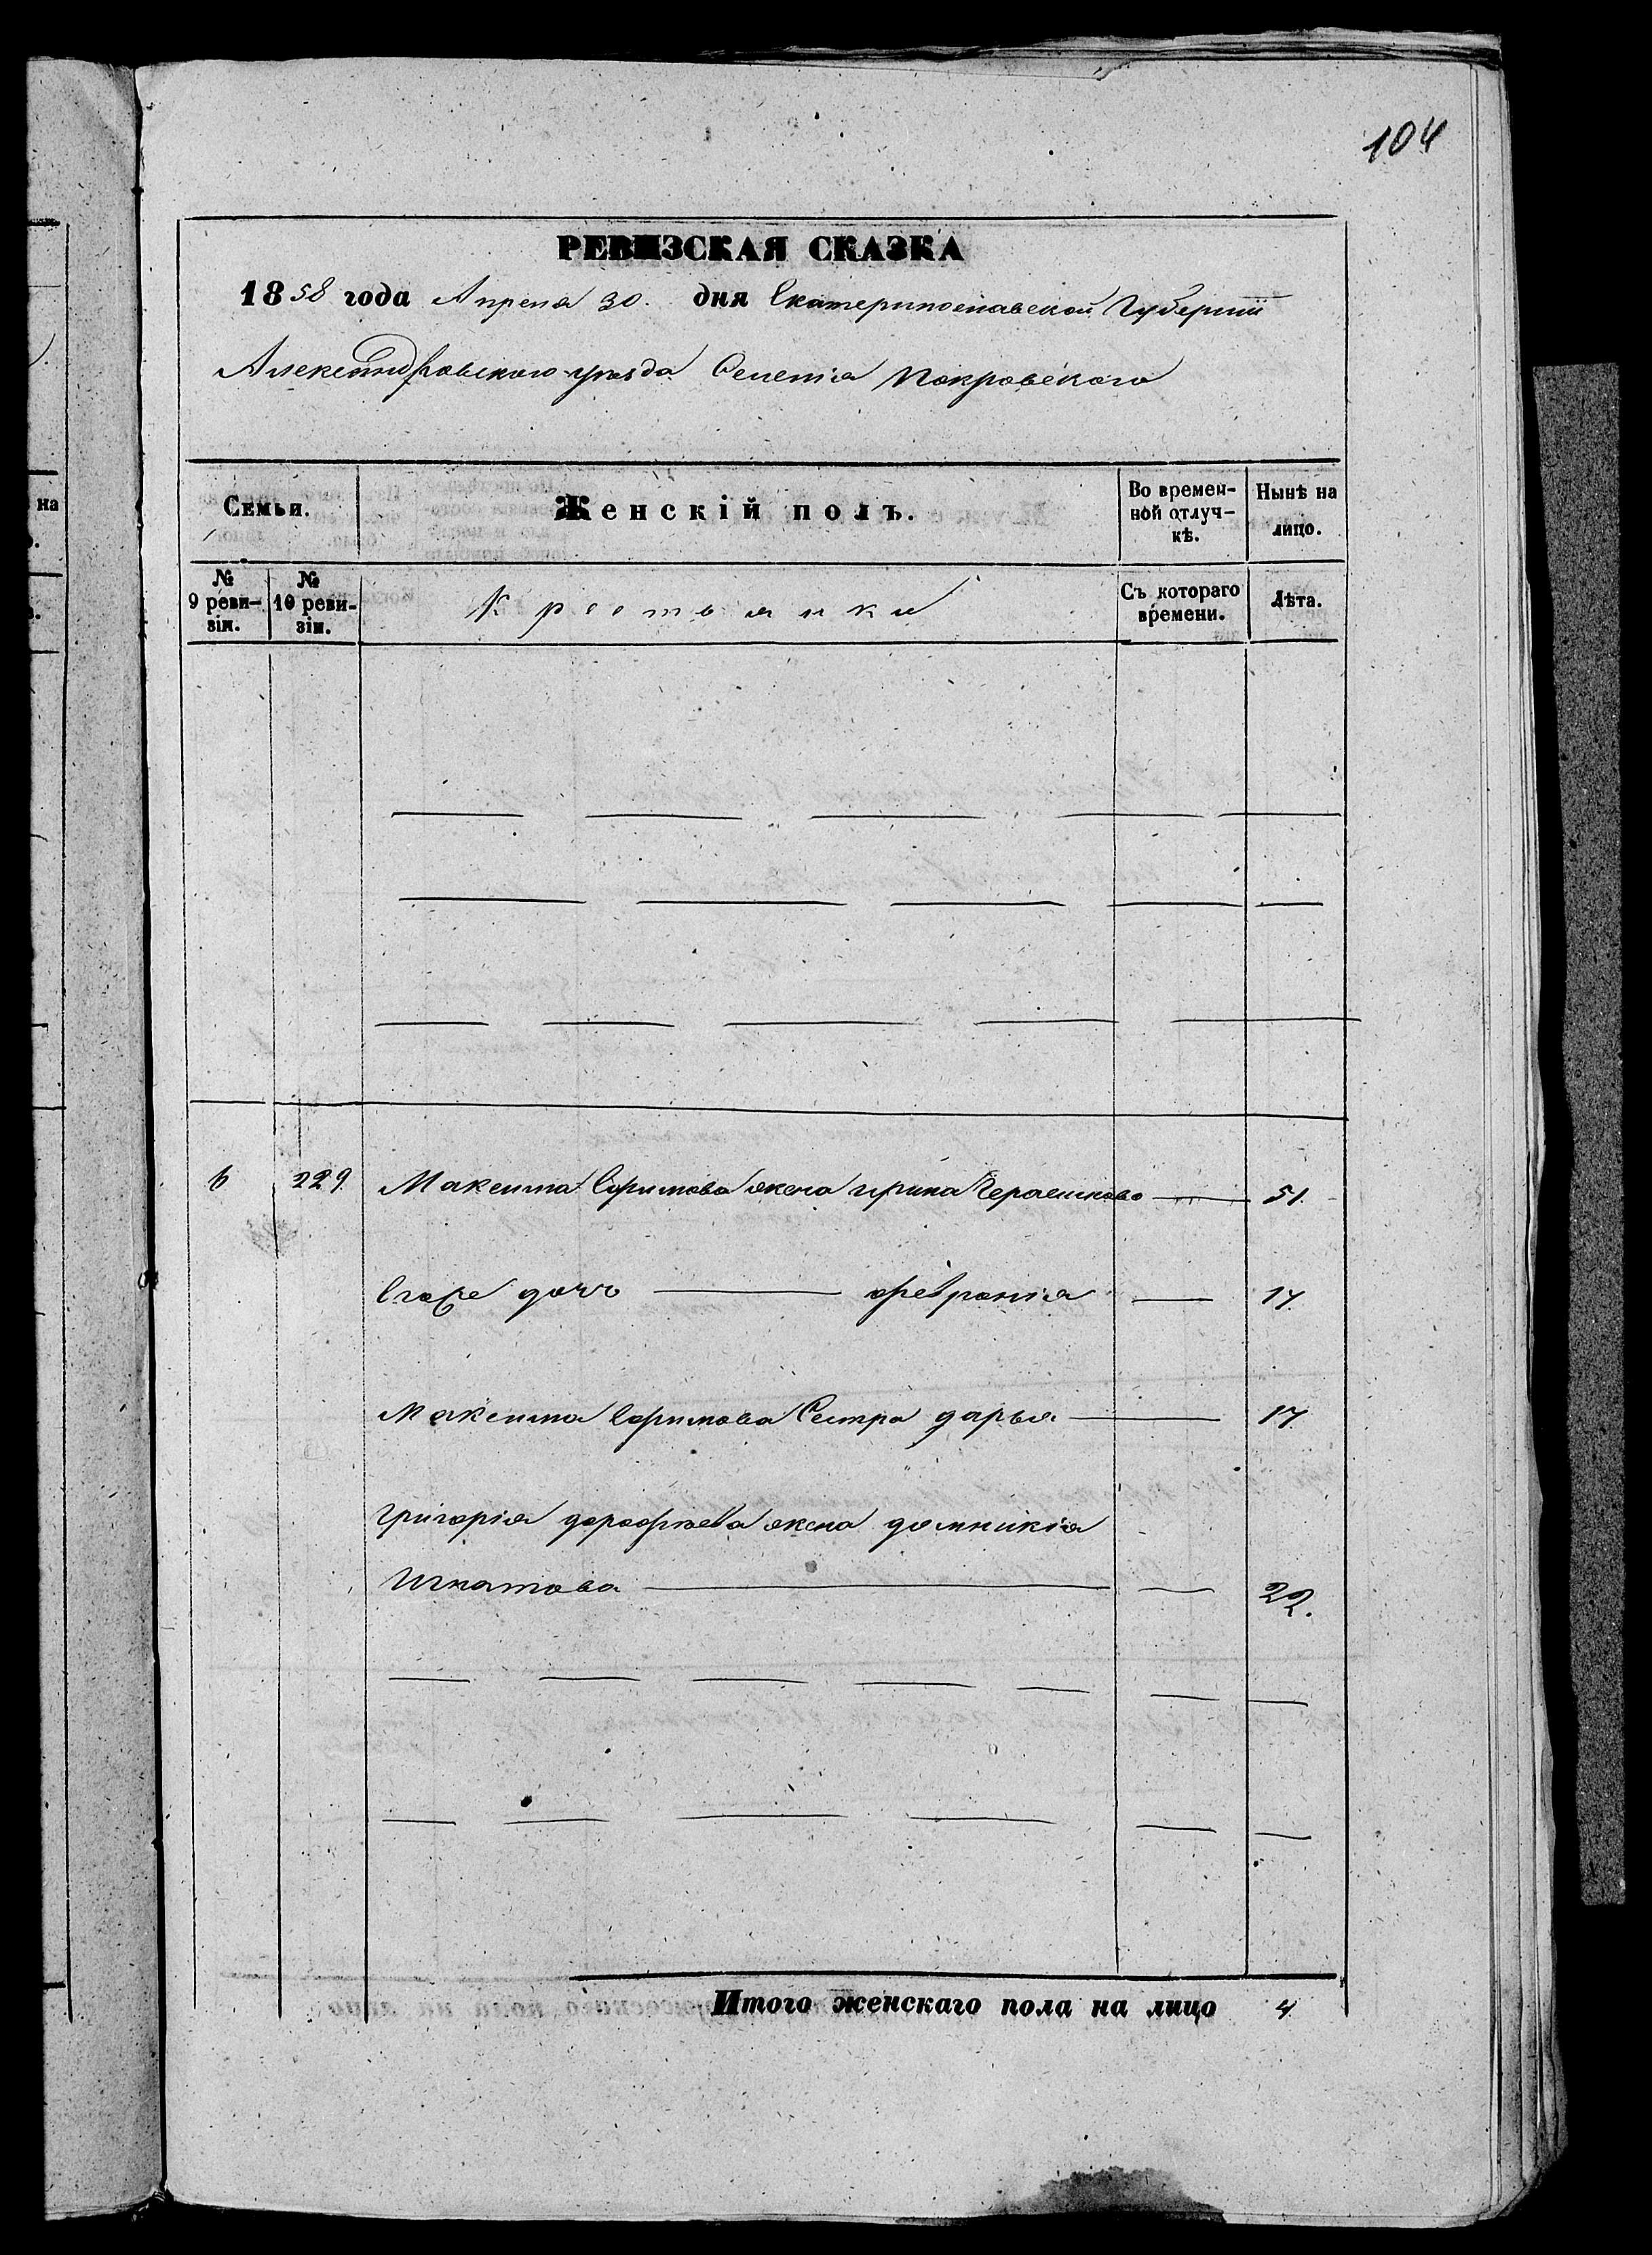 104
РЕВИЗСКАЯ СКАЗКА
1858 года Апреля 30. дня Екатеринославской Губернии
Александровского уезда Селения Покровского
Семьи.
Женскій полъ.
Во времен-
ной отлуч-
кѣ.
Нынѣ на
лицо.
№
9 реви-
зіи.
№
10 реви-
зіи.
Крестьянки
Съ котораго
времени.
Лѣта.
6 229 Максима Ефимова жена ирина Герасимова 51.
Егоже дочь февронія 17.
Максима Ефимова Сестра дарья 17
Григорія дорофѣева жена домникія
Игнатова 22.
Итого женскаго пола на лицо 4
на